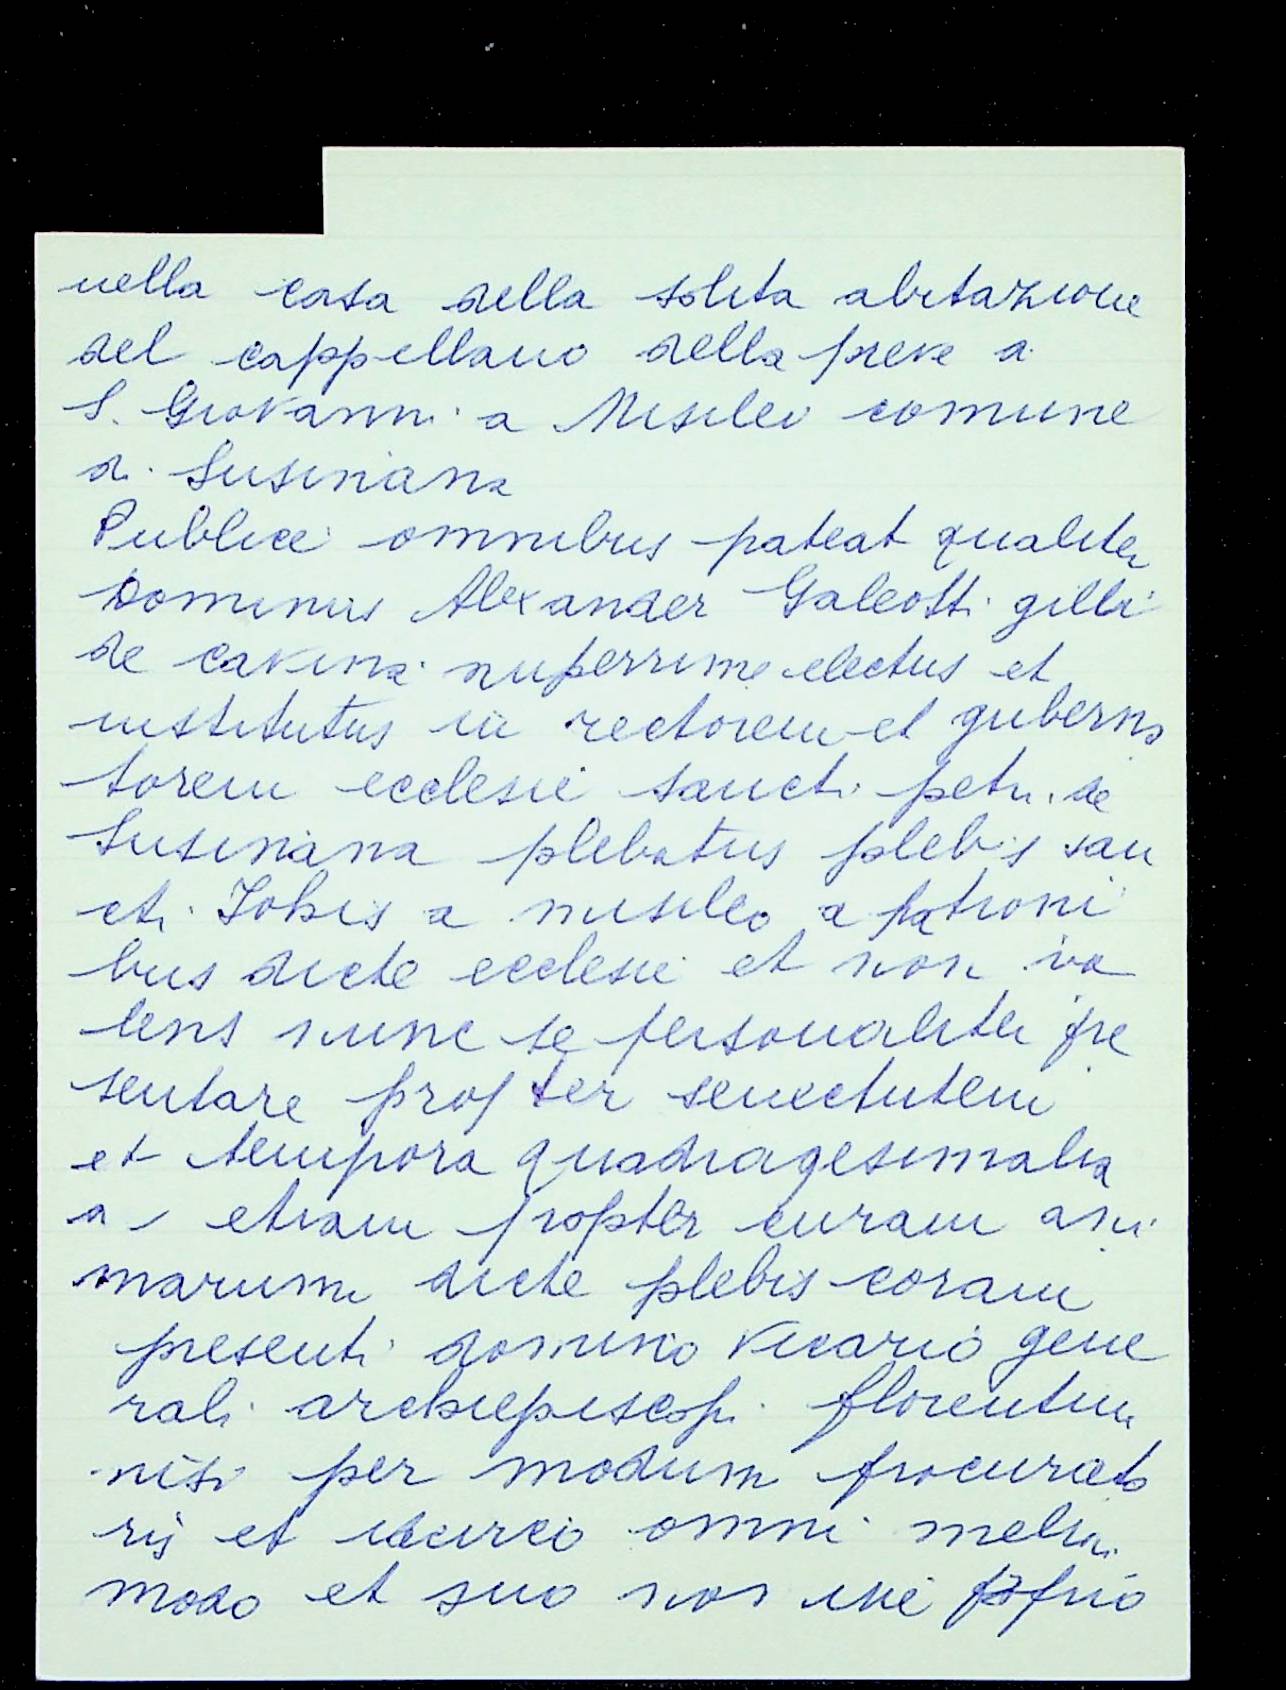 nella casa della solita abitazione
del cappellano della pieve a
S. Giovanni a Misileo comune
di Susinana
Publice omnibus pateat qualiter
Dominus Alexander Galeotti gilli
de cavina nuperrime electus et
institutus in rectorem et guberna
torem ecclesie sancti petri de
Susinana plebatus plebis san
cti Johis a misileo a patroni
bus dicte ecclesie et non va
lens nunc se personaliter pre
sentare propter senectutem
et tempora quadragesimalia
ac etiam propter curam ani
marum dicte plebis coram
presenti domino vicario gene
rali archiepiscopi florentin
nisi per modum procurato
ris et idcirco omni meliori
modo et suo nomine prio